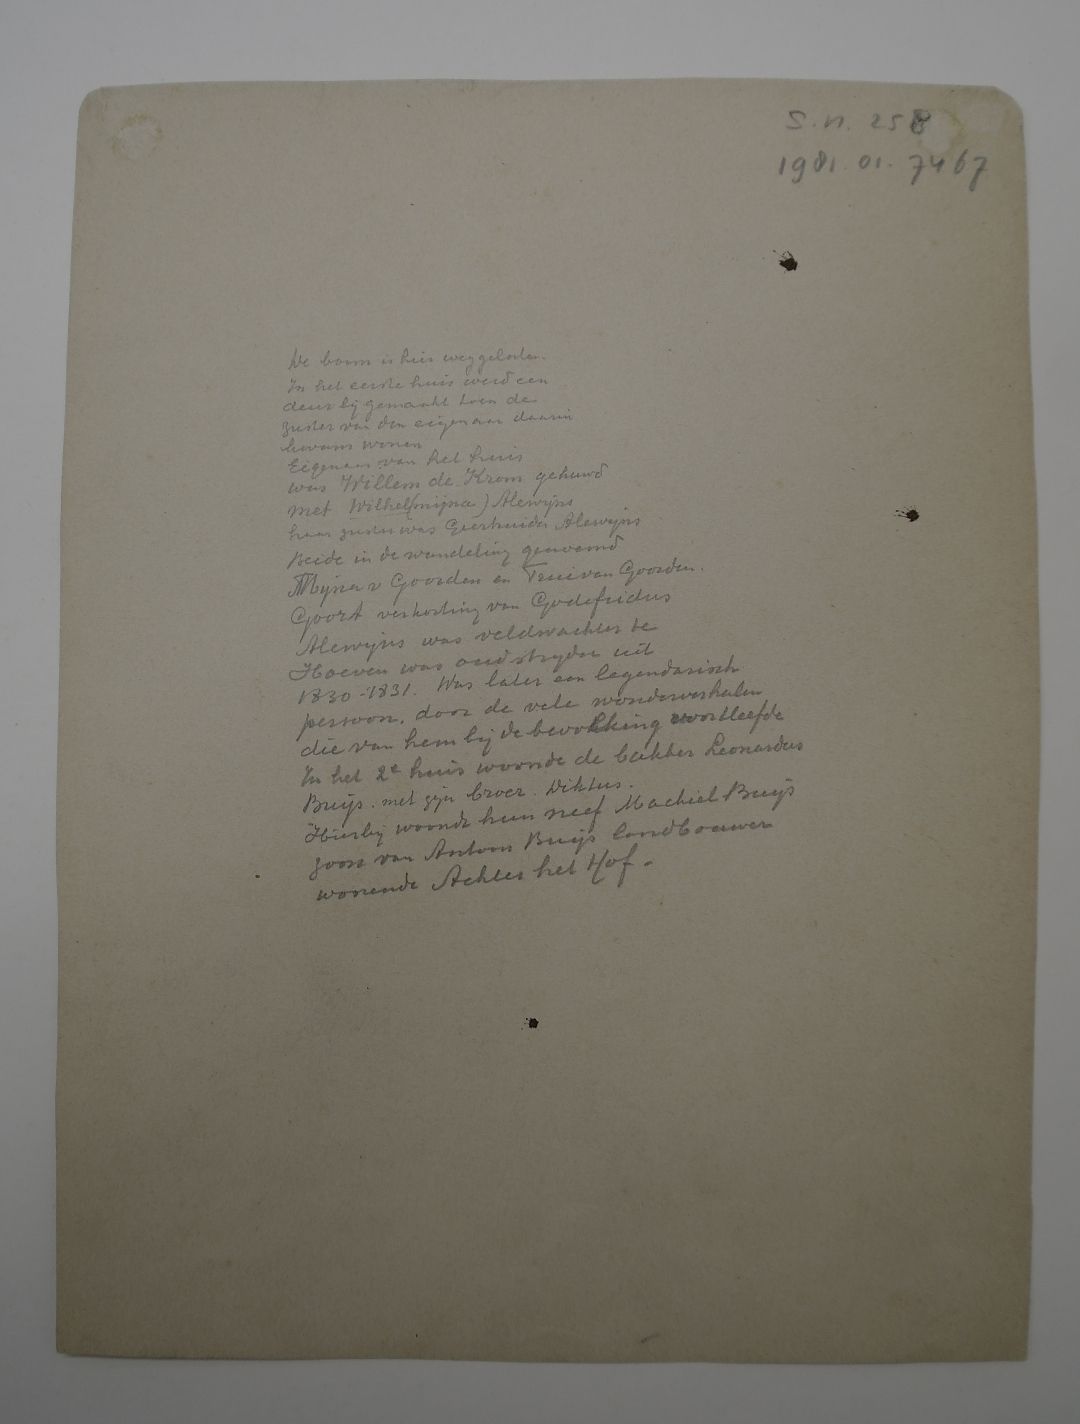 S.n. 258
1981.01.7467
De boom is hier weggelaten.
In het eerste huis werd een
deur bij gemaakt toen de
zuster van den eigenaar daarin
kwam wonen
Eigenaar van het huis
was Willem de Krom gehuwd
met Wilhel(mijna) Alewijns
haar zuster was Geertruida Alewijns
Beide in de wandeling genoemd
Mijna v Goorden en Trui van Goorden.
Goort verkorting van Godefridus
Alewijns was veldwachter te
Hoeven was oud stryder uit
1830-1831. Was later een legendarisch
persoon, door de vele wonderverhalen
die van hem bij de bevolking voortleefde
In het 2e huis woonde de bakker Leonardus
Buijs. met zijn broer. Dikkus.
Hierbij woonde hun neef Machiel Buijs
zoon van Antoon Buijs landbouwer
wonende Achter het Hof.